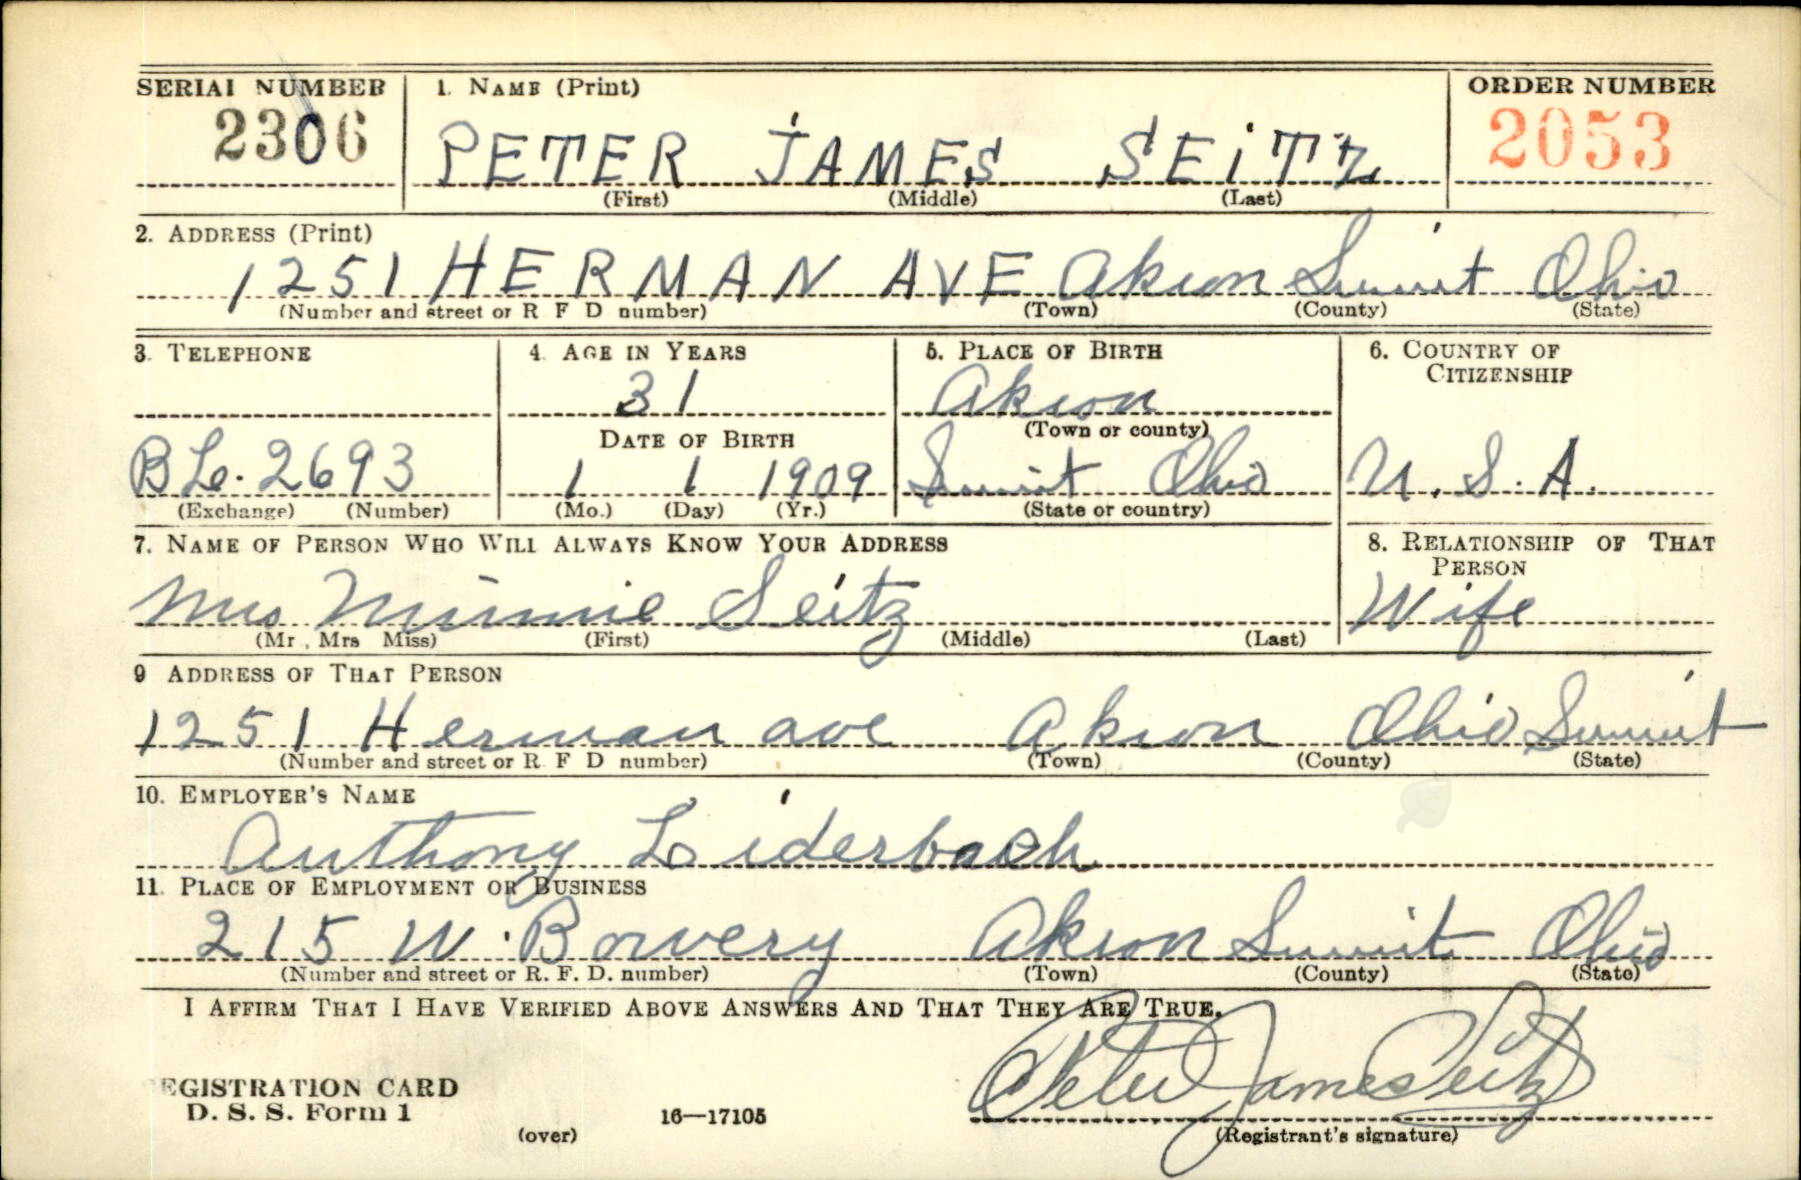 SERIAL NUMBER 1. NAME (Print) ORDER NUMBER
2306 PETER JAMES SEITZ 2053
(First) (Middle) (Last)
2. ADDRESS (Print)
1251 HERMAN AVE Akron Summit Ohio
(Number and street or R F D number) (Town) (County) (State)
3. TELEPHONE 4. AGE IN YEARS 5. PLACE OF BIRTH 6. COUNTRY OF
CITIZENSHIP
31 Akron
DATE OF BIRTH (Town or county)
BL. 2693 1 1 1909 Summit Ohio U. S. A.
(Exchange) (Number) (Mo.) (Day) (Yr.) (State or country)
7. NAME OF PERSON WHO WILL ALWAYS KNOW YOUR ADDRESS 8. RELATIONSHIP OF THAT
PERSON
Mrs Minnie Seitz Wife
(Mr., Mrs Miss) (First) (Middle) (Last)
9 ADDRESS OF THAT PERSON
1251 Herman ave Akron Ohio Summit
(Number and street or R F D number) (Town) (County) (State)
10. EMPLOYER'S NAME
Anthony Liderbach
11. PLACE OF EMPLOYMENT OR BUSINESS
215 W. Bowery Akron Summit Ohio
(Number and street or R. F. D. number) (Town) (County) (State)
I AFFIRM THAT I HAVE VERIFIED ABOVE ANSWERS AND THAT THEY ARE TRUE.
REGISTRATION CARD Peter James Seitz
D. S. S. Form 1 16—17105
(over) (Registrant's signature)